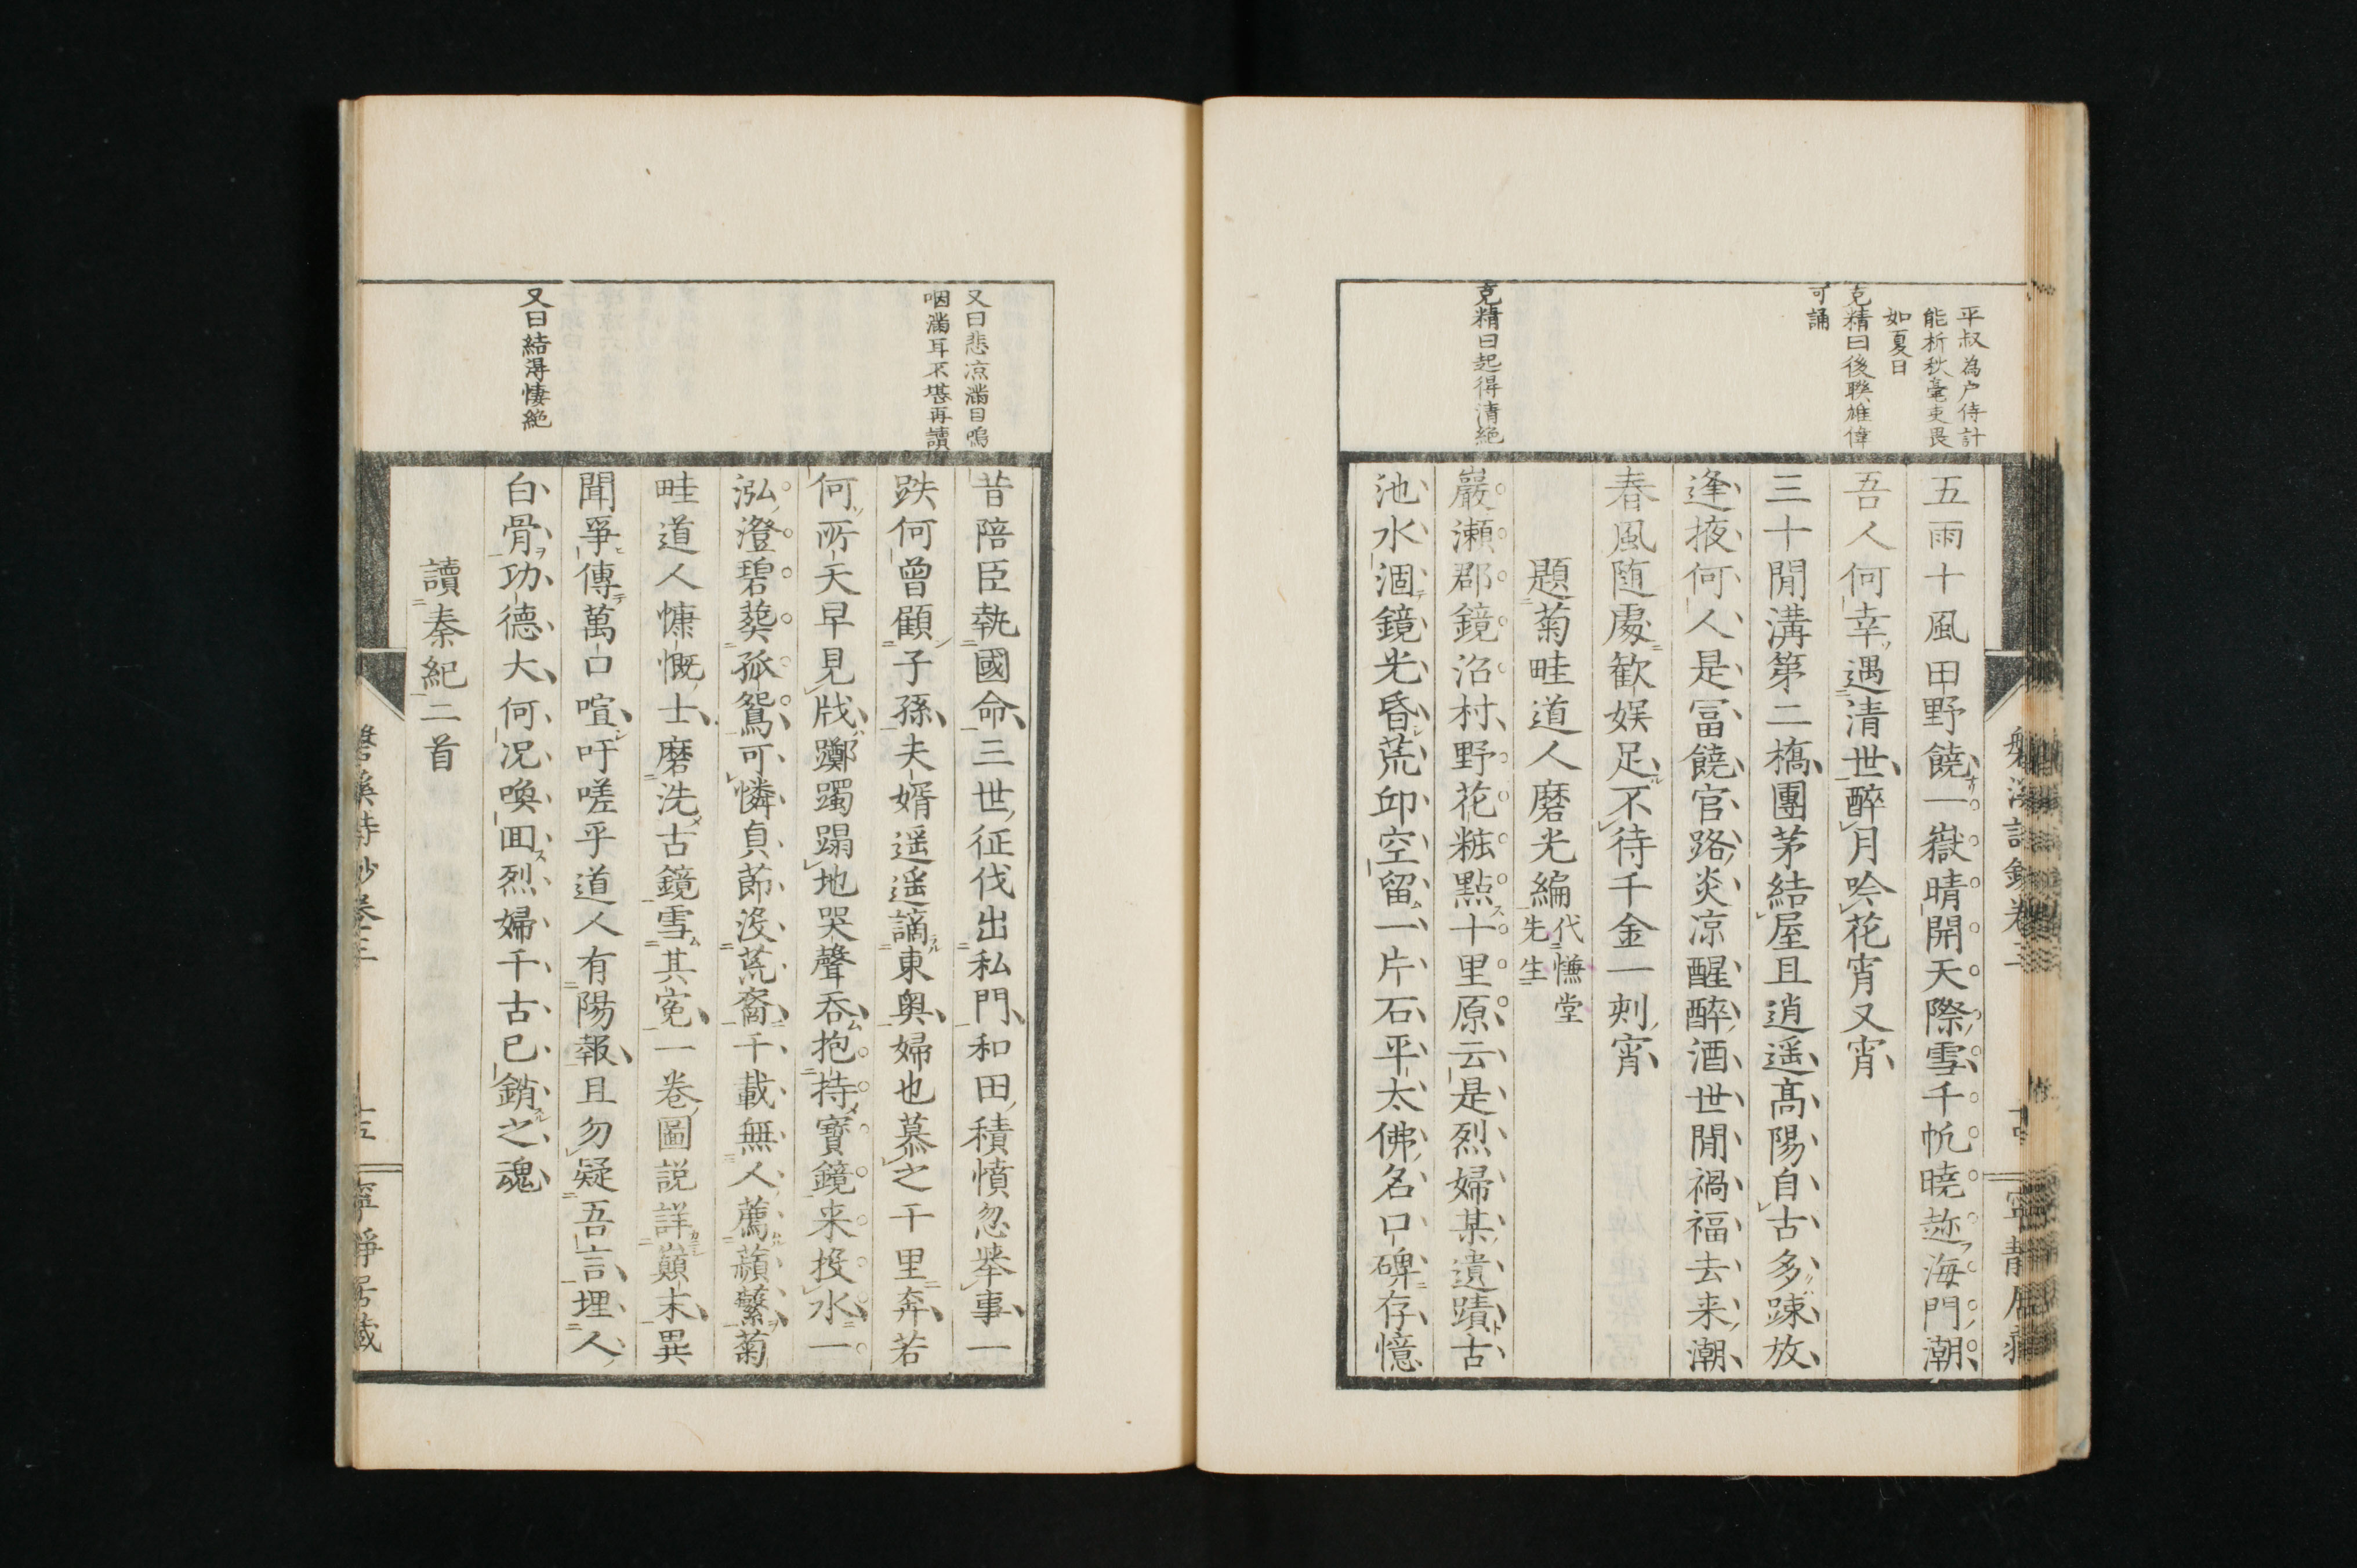 平叔為户侍計
能析秋毫吏畏
如夏日
克精曰後聯雄偉
可誦
克精曰起得清絶
五雨十風甲野饒一嶽晴開天際雪千帆曉趂海門潮
吾人何幸遇清世醉月吟花宵又宵
三十閒溝第二橋團茅結屋且逍遥髙陽自古多踈放
逢掖何人是冨饒官路炎凉醒醉酒世閒禍福去来潮
春風随處歓娱足不待千金一刺宵
題菊畦道人磨光編代慊堂
先生
巖瀬郡鏡沼村野花粧點十里原云是烈婦某遺蹟古
池水涸鏡光昏荒邱空留一片石平太佛名口碑存憶
又曰悲凉滿目嗚
咽滿耳不堪再讀
又曰結得悽絶
昔陪臣執國命三世征伐出私門和田積憤忽舉事一
跌何曾顧子孫夫婿遥遥謫東奥婦也慕之千里奔若
何所天早見戕躑躅蹋地哭聲吞抱持寶鏡来投水一
泓澄碧葬孤鴛可憐貞節没荒裔千載無人薦蘋蘩菊
畦道人慷慨士磨洗古鏡雪其寃一卷圖説詳巔末異
聞爭傳萬口喧吁嗟乎道人有陽報且勿疑吾言埋人
白骨功德大何况喚囬烈婦千古已銷之魂
讀秦紀二首